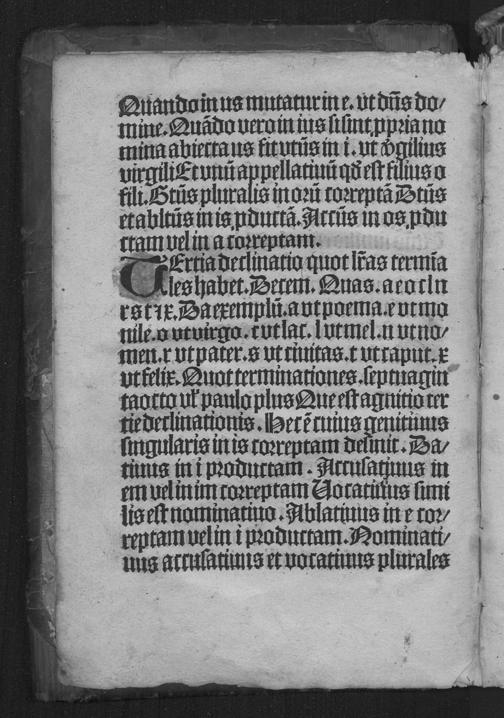 Quando in us mutatur in e. vt dn̄s do/
mine. Quādo vero in ius si sint ꝓpria no
mina abiecta us fit vtūs in i. vt v̾gilius
virgili Et vnū appellatiuū qd̄ est filius o
fili. Gtūs pluralis in orū correptā Dtūs
et abltūs in is ꝓductā. Accūs in os ꝓdu
ctam vel in a correptam.
TErtia declinatio quot lr̄as termīa
les habet. Decem. Quas. a e o c l n
r s t ⁊ x. Da exemplū. a vt poema. e vt mo
nile. o vt virgo. c vt lac. l vt mel. n vt no/
men. r vt pater. s vt ciuitas. t vt caput. x
vt felix. Quot terminationes. septuagin
ta octo vl̄ paulo plus Que est agnitio ter
tie declinationis. Hec ē cuius genitiuus
singularis in is correptam desinit. Da/
tiuus in i productam. Accusatiuus in
em vel in im correptam Vocatiuus simi
lis est nominatiuo. Ablatiuus in e cor/
reptam vel in i productam. Nominati/
uus accusatiuus et vocatiuus plurales